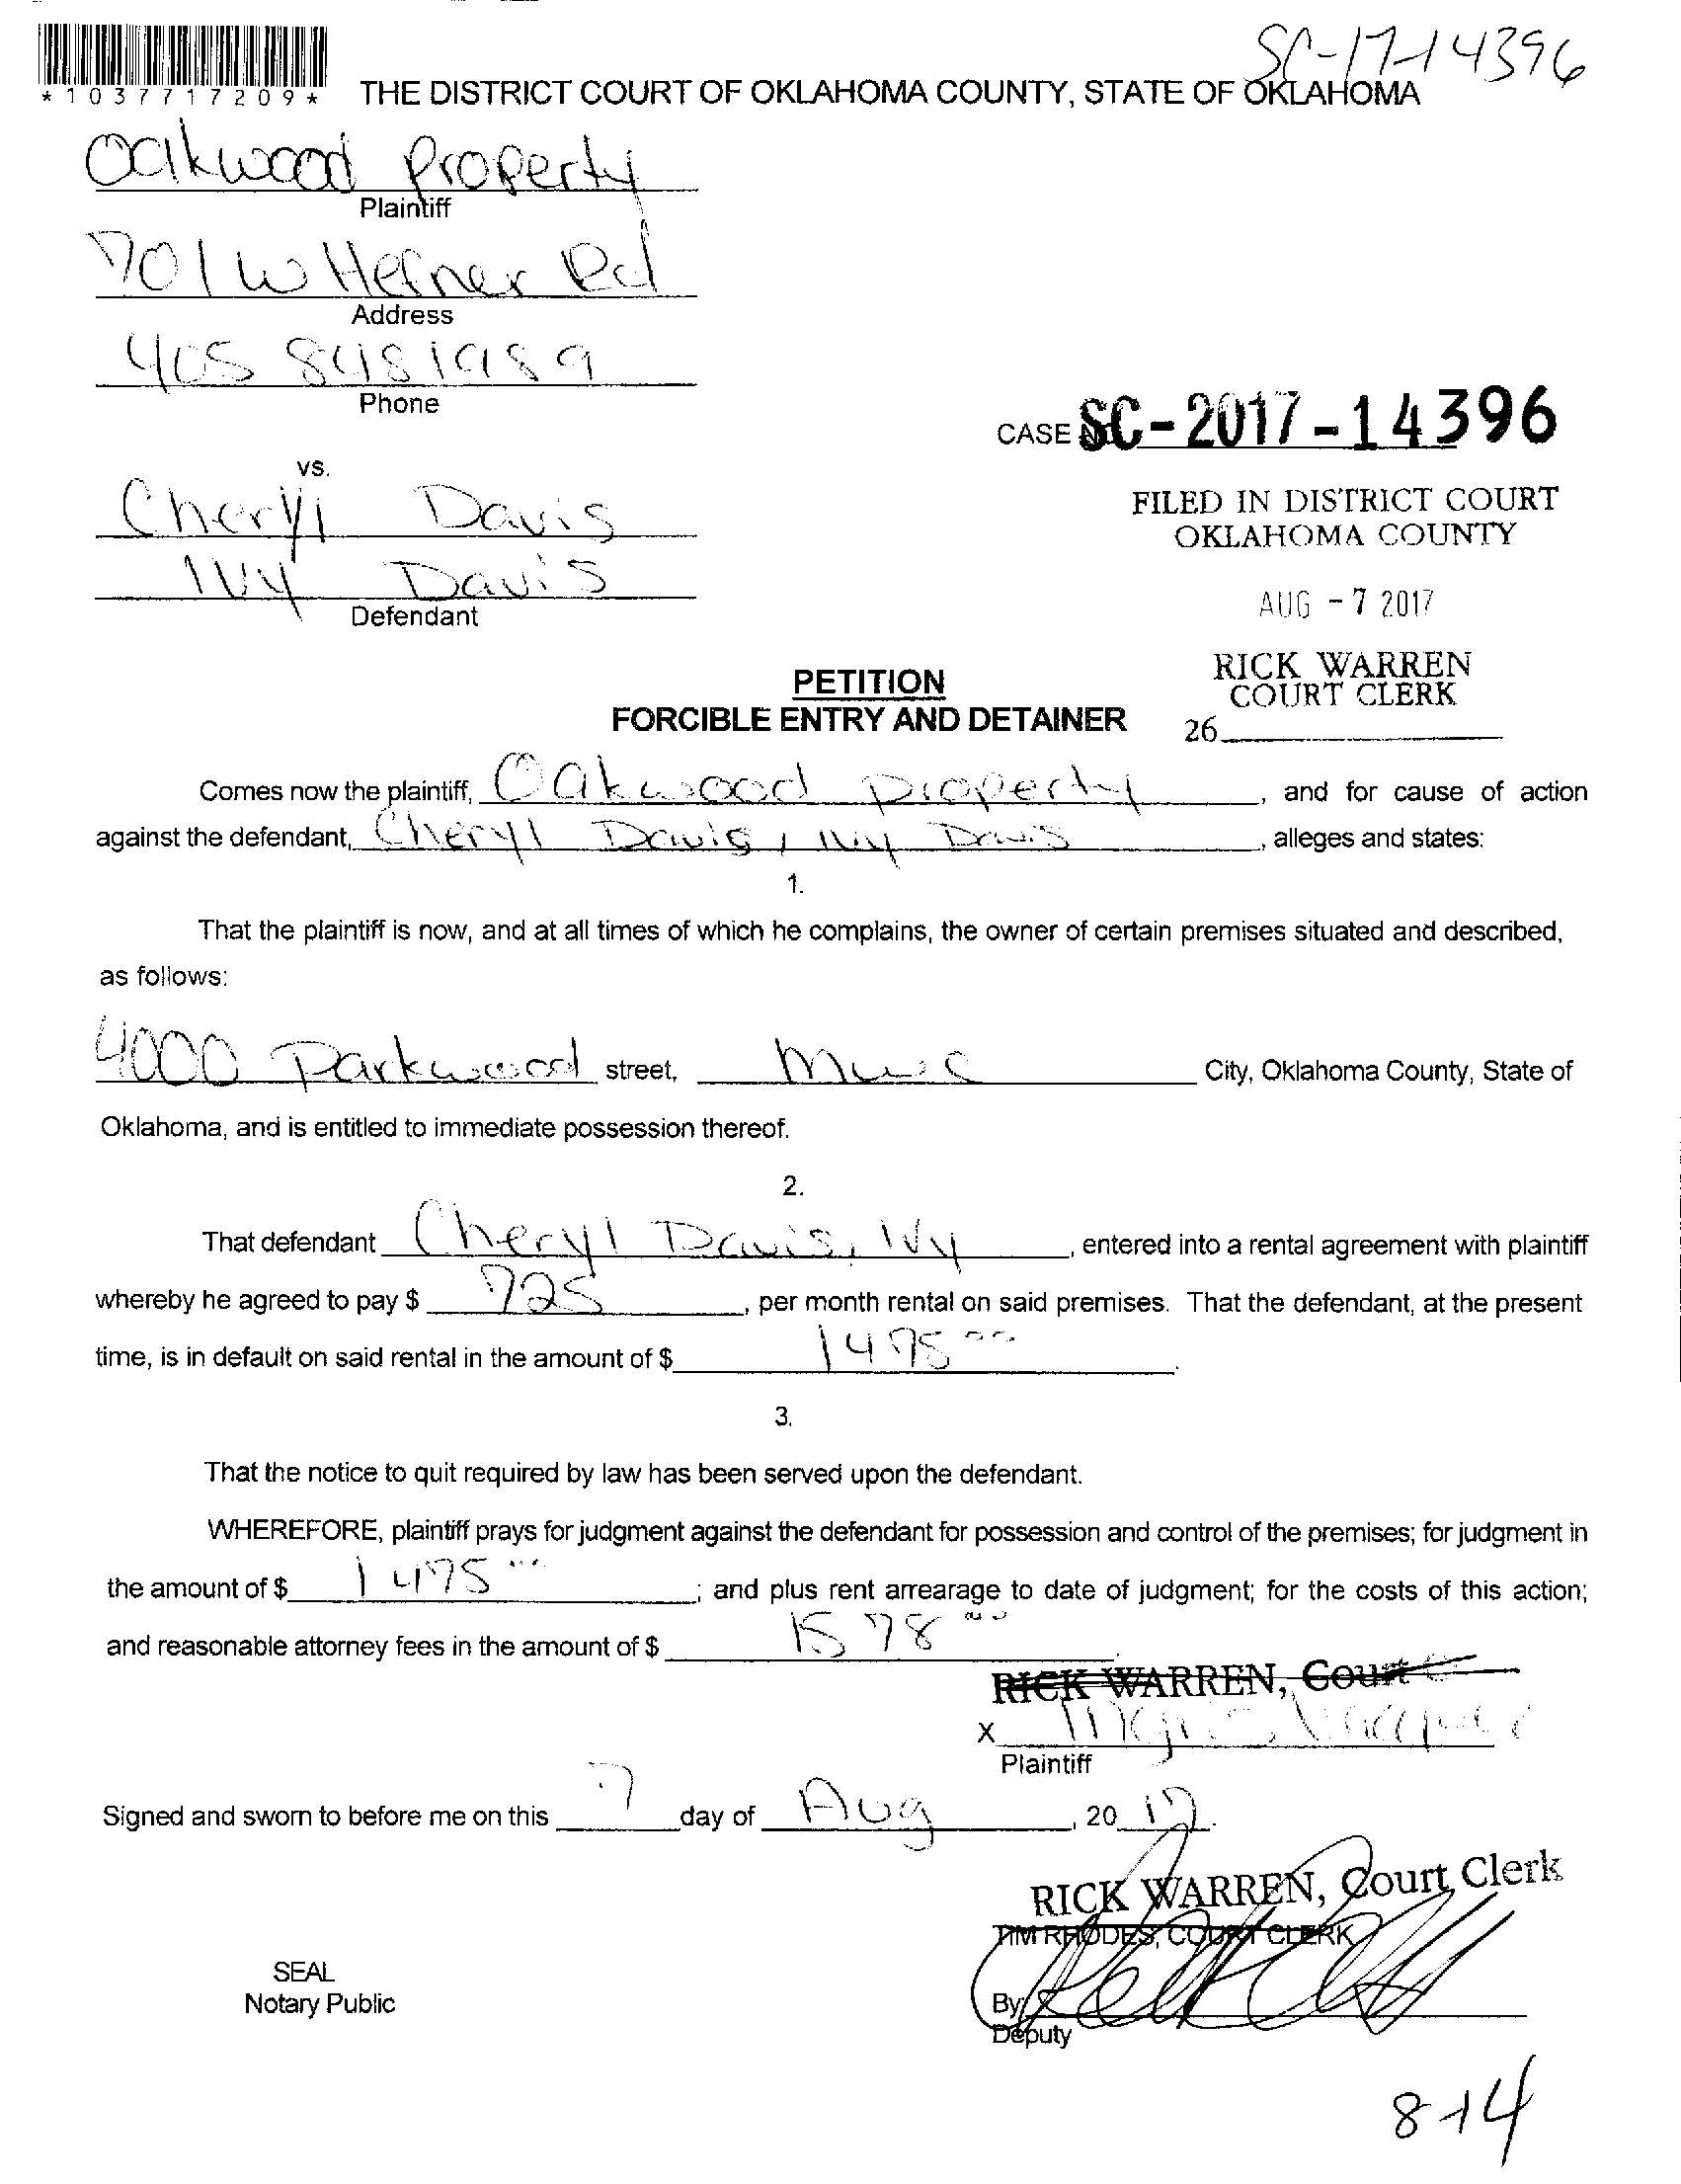 SC-17-14396
*1037717209*
THE DISTRICT COURT OF OKLAHOMA COUNTY, STATE OF OKLAHOMA
Oakwood Property
Plaintiff
701 W Hefner Rd
Address
405 848 1989
Phone
CASE SC-2017-14396
vs.
Cheryl Davis
Ivy Davis
Defendant
FILED IN DISTRICT COURT
OKLAHOMA COUNTY
AUG -7 2017
RICK WARREN
COURT CLERK
26
PETITION
FORCIBLE ENTRY AND DETAINER
Comes now the plaintiff, Oakwood Property, and for cause of action
against the defendant, Cheryl Davis, Ivy Davis, alleges and states:
1.
That the plaintiff is now, and at all times of which he complains, the owner of certain premises situated and described,
as follows:
4000 Parkwood street, MWC City, Oklahoma County, State of
Oklahoma, and is entitled to immediate possession thereof.
2.
That defendant Cheryl Davis, Ivy, entered into a rental agreement with plaintiff
whereby he agreed to pay $ 725, per month rental on said premises. That the defendant, at the present
time, is in default on said rental in the amount of $ 1475 00.
3.
That the notice to quit required by law has been served upon the defendant.
WHEREFORE, plaintiff prays for judgment against the defendant for possession and control of the premises; for judgment in
the amount of $ 1475 00; and plus rent arrearage to date of judgment; for the costs of this action;
and reasonable attorney fees in the amount of $ 1578 00.
RICK WARREN, Court
X
Plaintiff
Signed and sworn to before me on this 7 day of Aug, 20 17.
RICK WARREN, Court Clerk
TIM RHODES, COURT CLERK
SEAL
Notary Public
By
Deputy
8-14